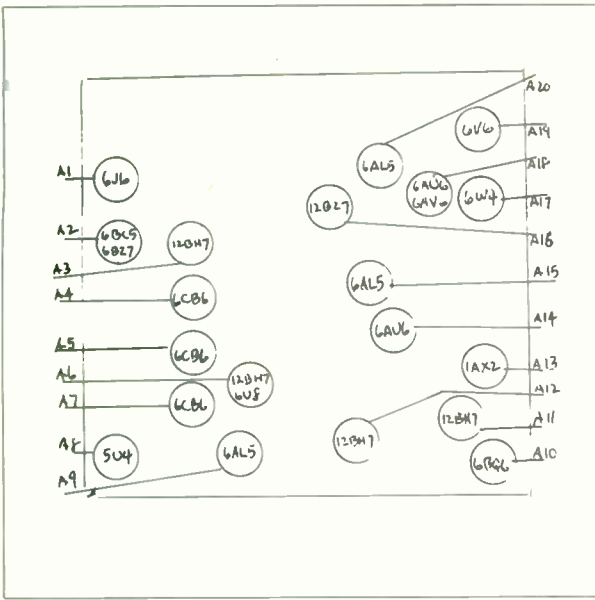 A1
6J6
A2
6BC5
6BZ7
A3
12BH7
A4
6CB6
A5
6CB6
A6
12BH7
6U8
A7
6CB6
A8
5U4
A9
6AL5
A20
6AL5
6V6
A19
A18
6AU6
6AV6
6W4
A17
12BZ7
A16
6AL5
A15
6AU6
A14
1AX2
A13
A12
12BH7
12BH7
A11
6BG6
A10